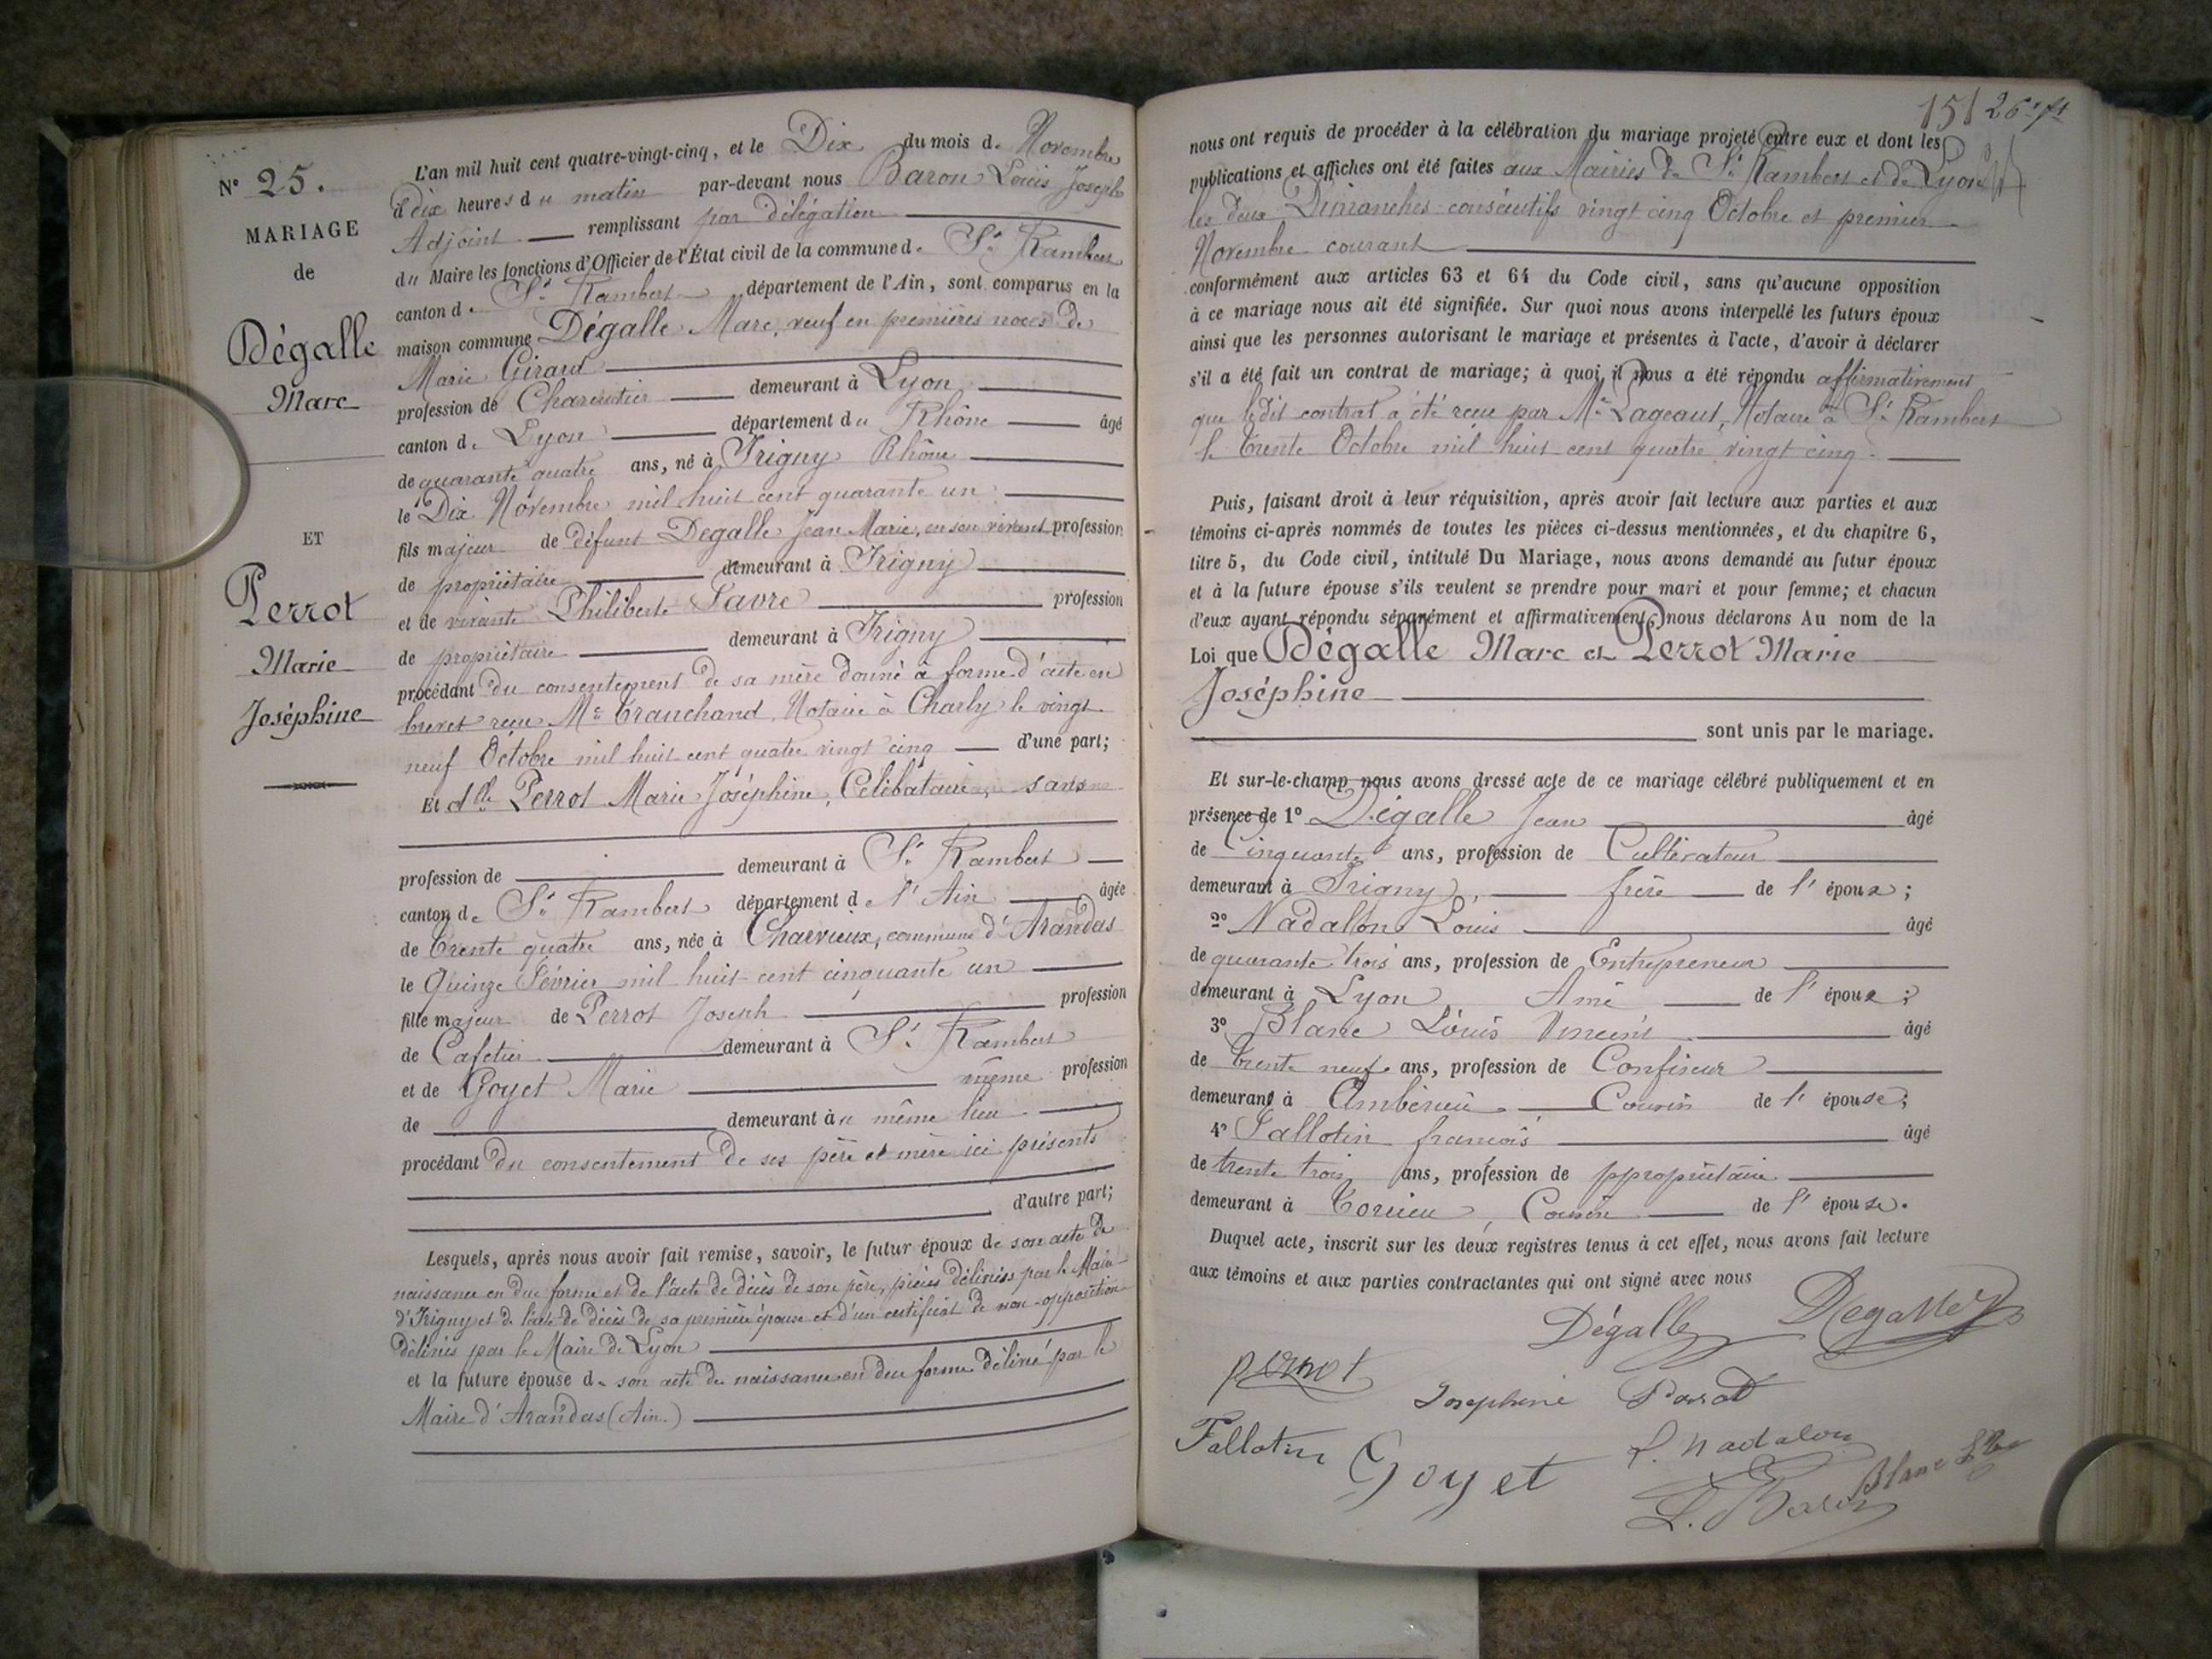 N° 25.
MARIAGE
de
Dégalle
Marc
ET
Perrot
Marie
Joséphine
L'an mil huit cent quatre-vingt-cinq, et le Dix du mois de Novembre
à dix heures du matin par-devant nous Baron Louis Joseph
Adjoint remplissant par délégation
du Maire les fonctions d'Officier de l'État civil de la commune de St Rambert
canton de St Rambert département de l'Ain, sont comparus en la
maison commune Dégalle Marc, veuf en premières noces de
Marie Girard
profession de Charcutier demeurant à Lyon
canton de Lyon département du Rhône âgé
de quarante quatre ans, né à Irigny Rhône
le Dix Novembre mil huit cent quarante un
fils majeur de défunt Degalle Jean Marie, en son vivant profession
de propriétaire demeurant à Irigny
et de vivante Philiberte Favre profession
de propriétaire demeurant à Irigny
procédant du consentement de sa mère donné à forme d'acte en
brevet reçu Me Tranchand, Notaire à Charly le vingt
neuf Octobre mil huit cent quatre vingt cinq d'une part;
Et dlle Perrot Marie Joséphine, Célibataire, sans
profession de demeurant à St Rambert
canton de St Rambert département de l'Ain âgée
de trente quatre ans, née à Charvieux, commune d'Arandas
le Quinze Février mil huit cent cinquante un
fille majeur de Perrot Joseph profession
de Cafetier demeurant à St Rambert
et de Goyet Marie même profession
de demeurant au même lieu
procédant du consentement de ses père et mère ici présents
d'autre part;
Lesquels, après nous avoir fait remise, savoir, le futur époux de son acte de
naissance en due forme et de l'acte de décès de son père, pièces délivrées par le Maire
d'Irigny et de l'acte de décès de sa première épouse et d'un certificat de non-opposition
délivrés par le Maire de Lyon
et la future épouse de son acte de naissance en due forme délivré par le
Maire d'Arandas (Ain.)
151 26e ft
nous ont requis de procéder à la célébration du mariage projeté entre eux et dont les
publications et affiches ont été faites aux Mairies de St Rambert et de Lyon
les deux Dimanches consécutifs vingt cinq Octobre et premier
Novembre courant
conformément aux articles 63 et 64 du Code civil, sans qu'aucune opposition
à ce mariage nous ait été signifiée. Sur quoi nous avons interpellé les futurs époux
ainsi que les personnes autorisant le mariage et présentes à l'acte, d'avoir à déclarer
s'il a été fait un contrat de mariage; à quoi il nous a été répondu affirmativement
que ledit contrat a été reçu par Me Lageant, Notaire à St Rambert
le trente Octobre mil huit cent quatre vingt cinq.
Puis, faisant droit à leur réquisition, après avoir fait lecture aux parties et aux
témoins ci-après nommés de toutes les pièces ci-dessus mentionnées, et du chapitre 6,
titre 5, du Code civil, intitulé Du Mariage, nous avons demandé au futur époux
et à la future épouse s'ils veulent se prendre pour mari et pour femme; et chacun
d'eux ayant répondu séparément et affirmativement, nous déclarons Au nom de la
Loi que Dégalle Marc et Perrot Marie
Joséphine
sont unis par le mariage.
Et sur-le-champ nous avons dressé acte de ce mariage célébré publiquement et en
présence de 1° Dégalle Jean âgé
de Cinquante ans, profession de Cultivateur
demeurant à Irigny, frère de l'époux;
2° Nadalon Louis âgé
de quarante trois ans, profession de Entrepreneur
demeurant à Lyon, Ami de l'époux;
3° Blanc Louis Vincent âgé
de trente neuf ans, profession de Confiseur
demeurant à Ambérieu Cousin de l'épouse;
4° Fallotin françois âgé
de trente trois ans, profession de ppropriétaire
demeurant à Torcieu, Cousin de l'épouse.
Duquel acte, inscrit sur les deux registres tenus à cet effet, nous avons fait lecture
aux témoins et aux parties contractantes qui ont signé avec nous
Dégalle Degalle
perrot Josephine Perrot
Fallotin Goyet L. Nadalon
L. Baron Blanc